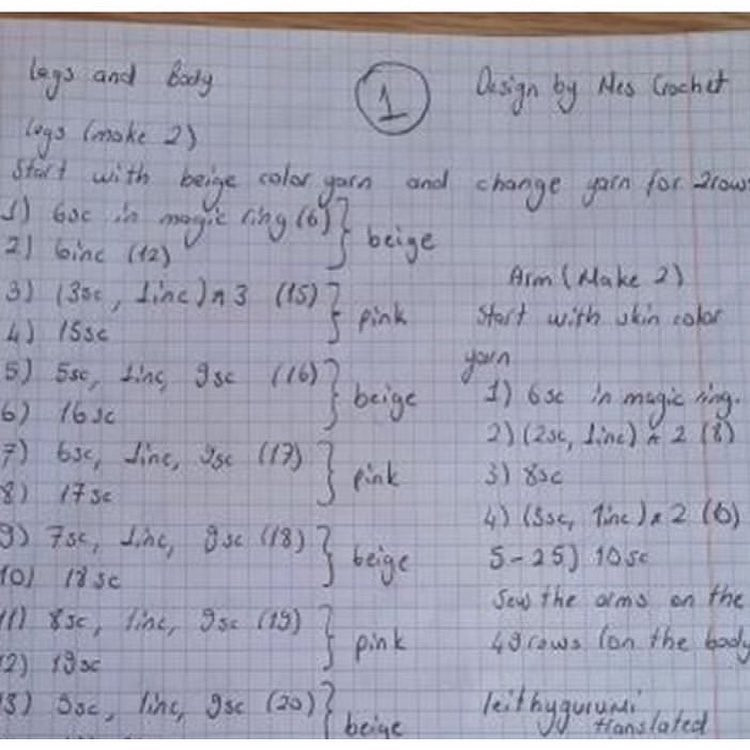 Legs and Body
1
Design by Nes Crochet
Legs (make 2)
Start with beige color yarn and change yarn for 2rows
1) 6sc in magic ring (6)
2) 6inc (12)
beige
3) (3sc, 1inc)x3 (15)
4) 15sc
pink
5) 5sc, 1inc, 9sc (16)
6) 16sc
beige
7) 6sc, 1inc, 9sc (17)
8) 17sc
pink
9) 7sc, 1inc, 9sc (18)
10) 18sc
beige
11) 8sc, 1inc, 9sc (19)
12) 19sc
pink
13) 9sc, 1inc, 9sc (20)
beige
Arm (Make 2)
Start with skin color
yarn
1) 6sc in magic ring.
2) (2sc, 1inc) x 2 (8)
3) 8sc
4) (3sc, 1inc) x 2 (0)
5-25) 10sc
Sew the arms on the
49rows (on the body
leithygurumi
translated